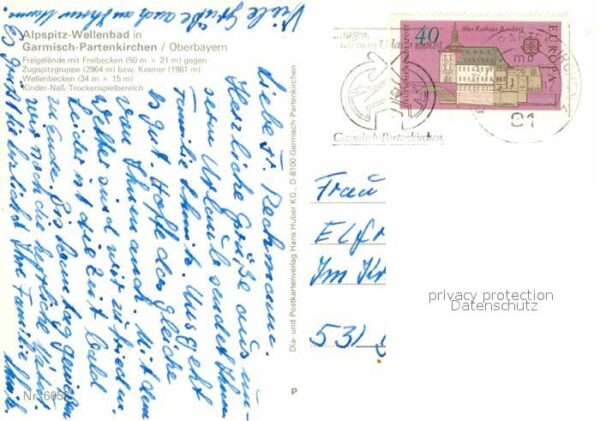 Alpspitz-Wellenbad in
Garmisch-Partenkirchen / Oberbayern
Freigelände mit Freibecken (50 m × 21 m) gegen
Zugspitzgruppe (2964 m) bzw. Kramer (1981 m)
Wellenbecken (34 m × 15 m)
Kinder-Naß/Trockenspielbereich
Viele Grüße auch an Ihren Mann.
Liebe Fr. Rechmann.
Herzliche Grüße aus un-
serem Urlaub sendet Ihnen
Familie Schmitz. Uns geht
es gut. Hoffe das gleiche
von Ihnen auch. Mit dem
Wetter sind wir zufrieden.
Leider ist die Zeit bald
zu Ende. Bis Sonntag genießen
wir noch die herrliche Natur.
Es grüßt Sie herzlichst Ihre Familie
Nr. 6058
Dia- und Postkartenverlag Hans Huber KG., D-8100 Garmisch-Partenkirchen
P
Garmisch-Partenkirchen
40
Altes Rathaus Bamberg
EUROPA
DEUTSCHE BUNDESPOST
Frau
Elfr
Im Kr
531
privacy protection
Datenschutz